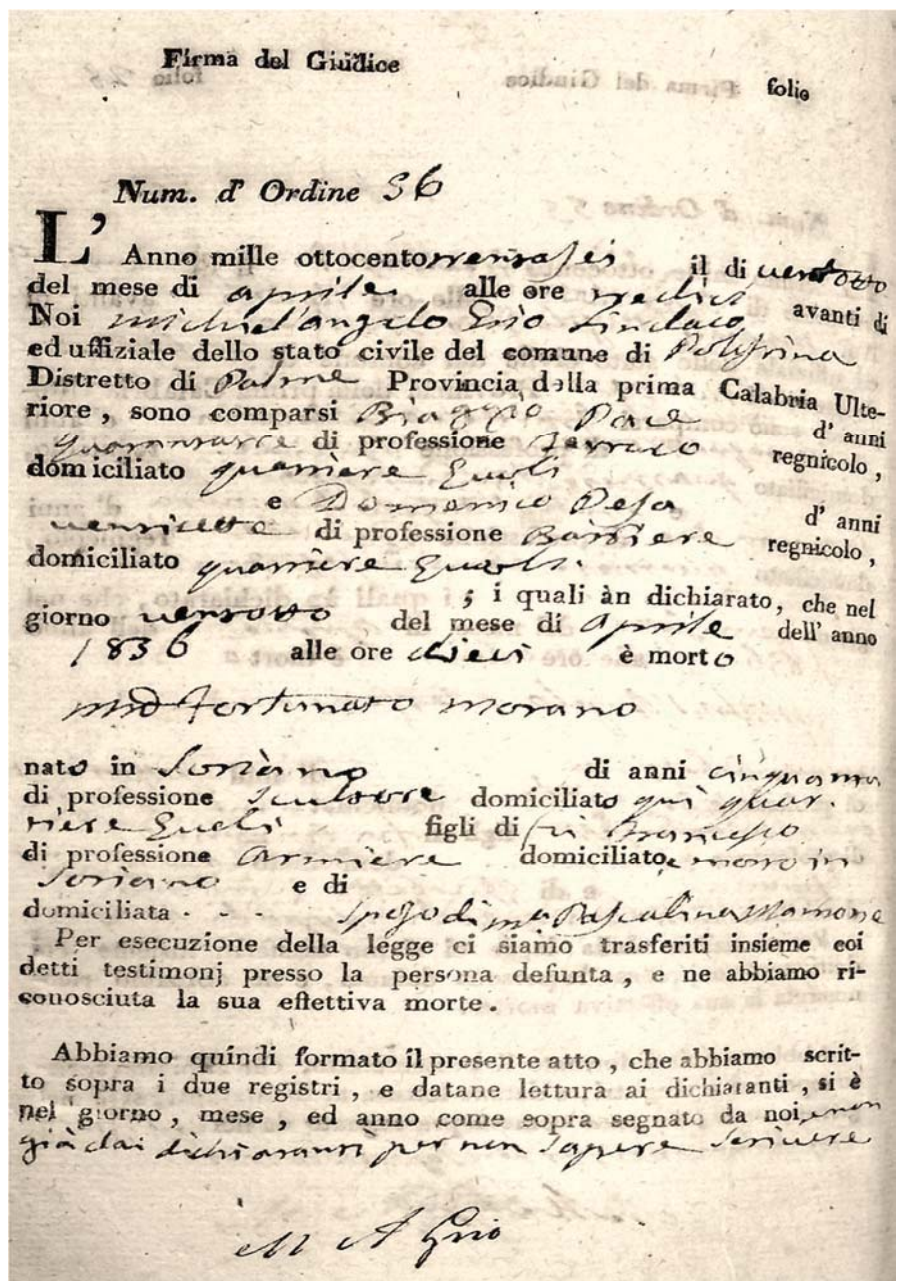 Firma del Giudice
folio
Num. d' Ordine 36
L' Anno mille ottocento trentasei il di ventotto
del mese di aprile alle ore tredici avanti di
Noi Michel'angelo Grio Sindaco
ed uffiziale dello stato civile del comune di Polistina
Distretto di Palme Provincia della prima Calabria Ulte-
riore, sono comparsi Biaggio Pace d' anni
di professione regnicolo,
domiciliato quartiere
e Domenico Pesa d' anni
ventisette di professione regnicolo,
domiciliato quartiere
; i quali àn dichiarato, che nel
giorno ventotto del mese di aprile dell' anno
1836 alle ore dieci è morto
Fortunato Morano
nato in Soriano di anni cinquanta
di professione scultore domiciliato qui quar-
tiere figli di Francesco
di professione armiere domiciliato, e morto in
Soriano e di
domiciliata . . . sposo di Pascalina Mamone
Per esecuzione della legge ci siamo trasferiti insieme coi
detti testimonj presso la persona defunta, e ne abbiamo ri-
conosciuta la sua effettiva morte.
Abbiamo quindi formato il presente atto, che abbiamo scrit-
to sopra i due registri, e datane lettura ai dichiaranti, si è
nel giorno, mese, ed anno come sopra segnato da noi, e non
già dai dichiaranti per non sapere scrivere
M A Grio